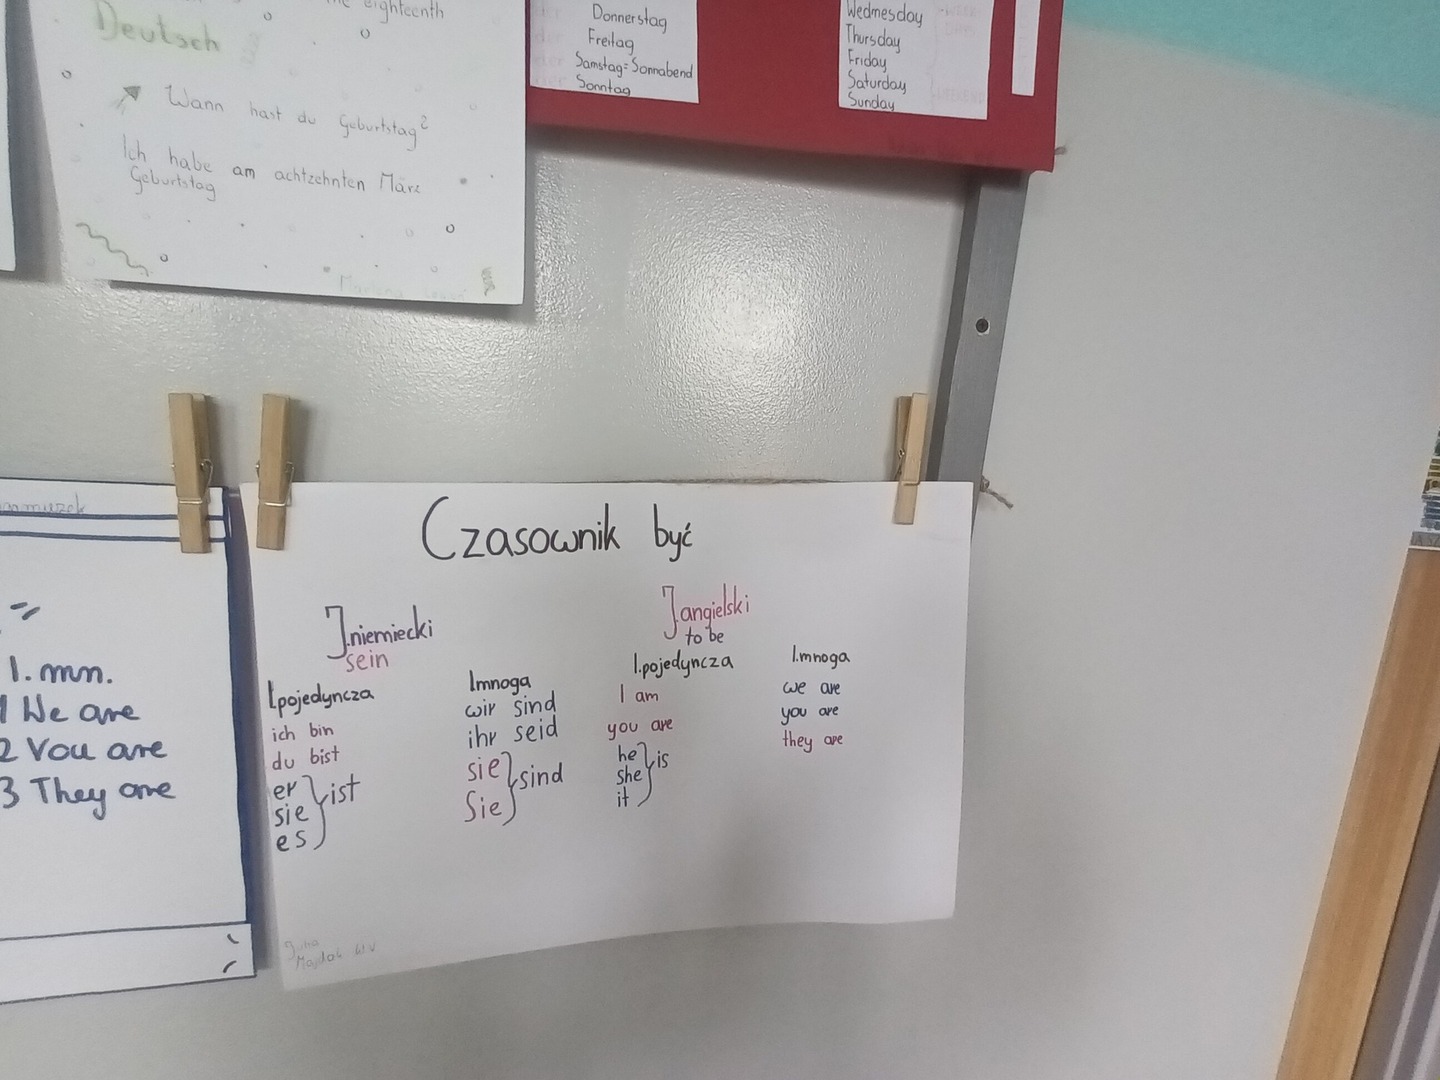 eighteenth
Deutsch
Wann hast du Geburtstag?
Ich habe am achtzehnten März
Geburtstag
Donnerstag
Freitag
Samstag=Sonnabend
Sonntag
Wednesday
Thursday
Friday
Saturday
Sunday
WEEKEND
l. mn.
1 We are
2 You are
3 They are
Czasownik być
J.niemiecki
sein
l.pojedyncza
ich bin
du bist
er
sie
es
ist
l.mnoga
wir sind
ihr seid
sie
Sie
sind
J.angielski
to be
l.pojedyncza
I am
you are
he
she
it
is
l.mnoga
we are
you are
they are
Julia